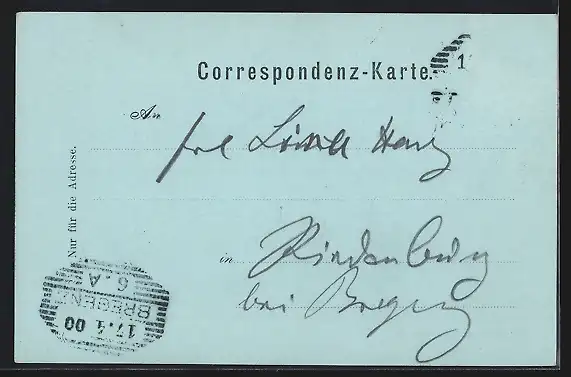 Correspondenz-Karte.
1
An
frl
Nur für die Adresse.
in Riedenburg
bei Bregenz
BREGENZ
17.1.00
6.A